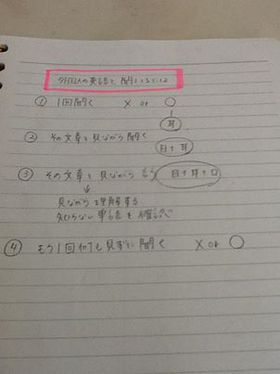 外国人の英語を聞きとるには
① 1回聞く × or ○
耳
② その文章を見ながら聞く
目で耳
③ その文章を見ながら言う 目で耳で口
↓
見ながら理解する
知らない単語を確認
④ もう1回何も見ずに聞く × or ○